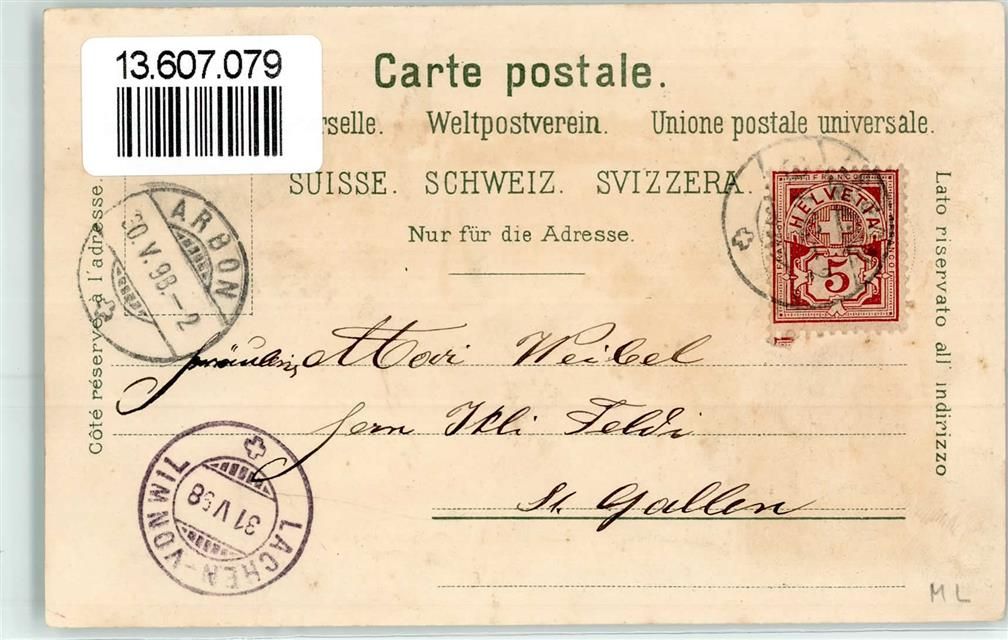 13.607.079
Carte postale.
rselle. Weltpostverein. Unione postale universale.
SUISSE. SCHWEIZ. SVIZZERA.
Nur für die Adresse.
Côté réservé à l'adresse.
Lato riservato all' indirizzo
ARBON
30.V.98.-2
FRANCO
HELVETIA
5
Fräulein Mari Weibel
St. Gallen
LACHEN-VONWIL
31 V 98
ML